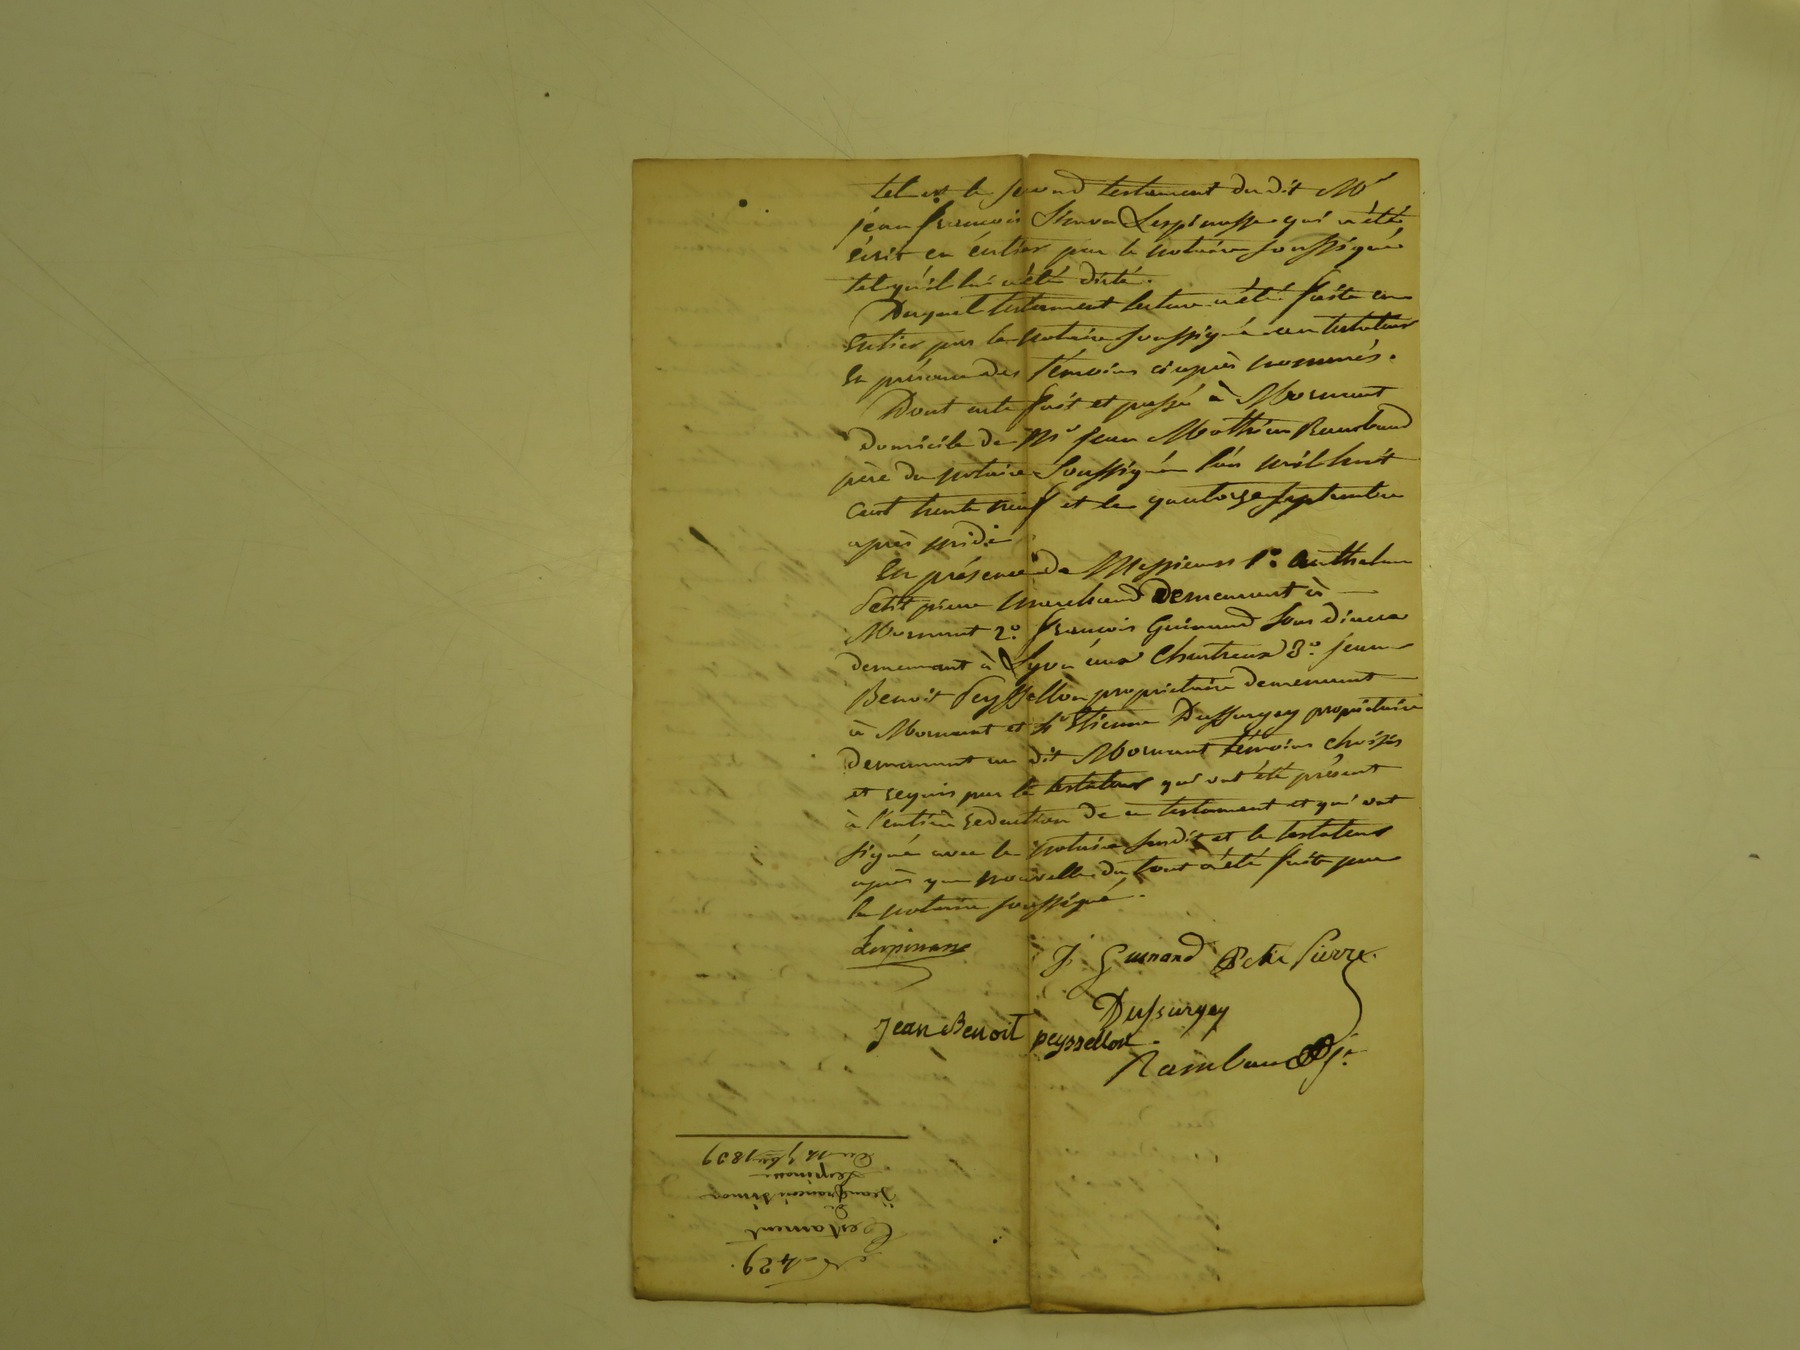 tel est le second testament du dit Mr
jean françois Simon Lespinasse qui a été
écrit en entier par le notaire soussigné
tel qu'il lui a été dicté.
Duquel testament lecture a été faite en
entier par le notaire soussigné au testateur
En présence des témoins ci après nommés.
Dont acte fait et passé à Mornant
domicile de Mr jean Mathieu Rambaud
père du notaire soussigné l'an mil huit
cent trente neuf et le quatorze septembre
après midi
En présence de Messieurs 1o Anthelme
Petit pierre marchand demeurant à
Mornant 2o françois Guinand
demeurant à Lyon aux Chartreux 3o jean
Benoit Peyssellon propriétaire demeurant
à Mornant et 4o Etienne Dussurgey propriétaire
demeurant au dit Mornant témoins choisis
et requis par le testateur qui ont été présent
à l'entière redaction de ce testament et qui ont
signé avec le notaire susdit et le testateur
après que nouvelle du tout a été faite par
le notaire soussigné.
Lespinasse
f. Guinand Petit Pierre
Dussurgey
Jean Benoit peyssellon.
Rambaud je.
No 429.
Testament
de
jean françois Simon
Lespinasse
Du 14 7bre 1839